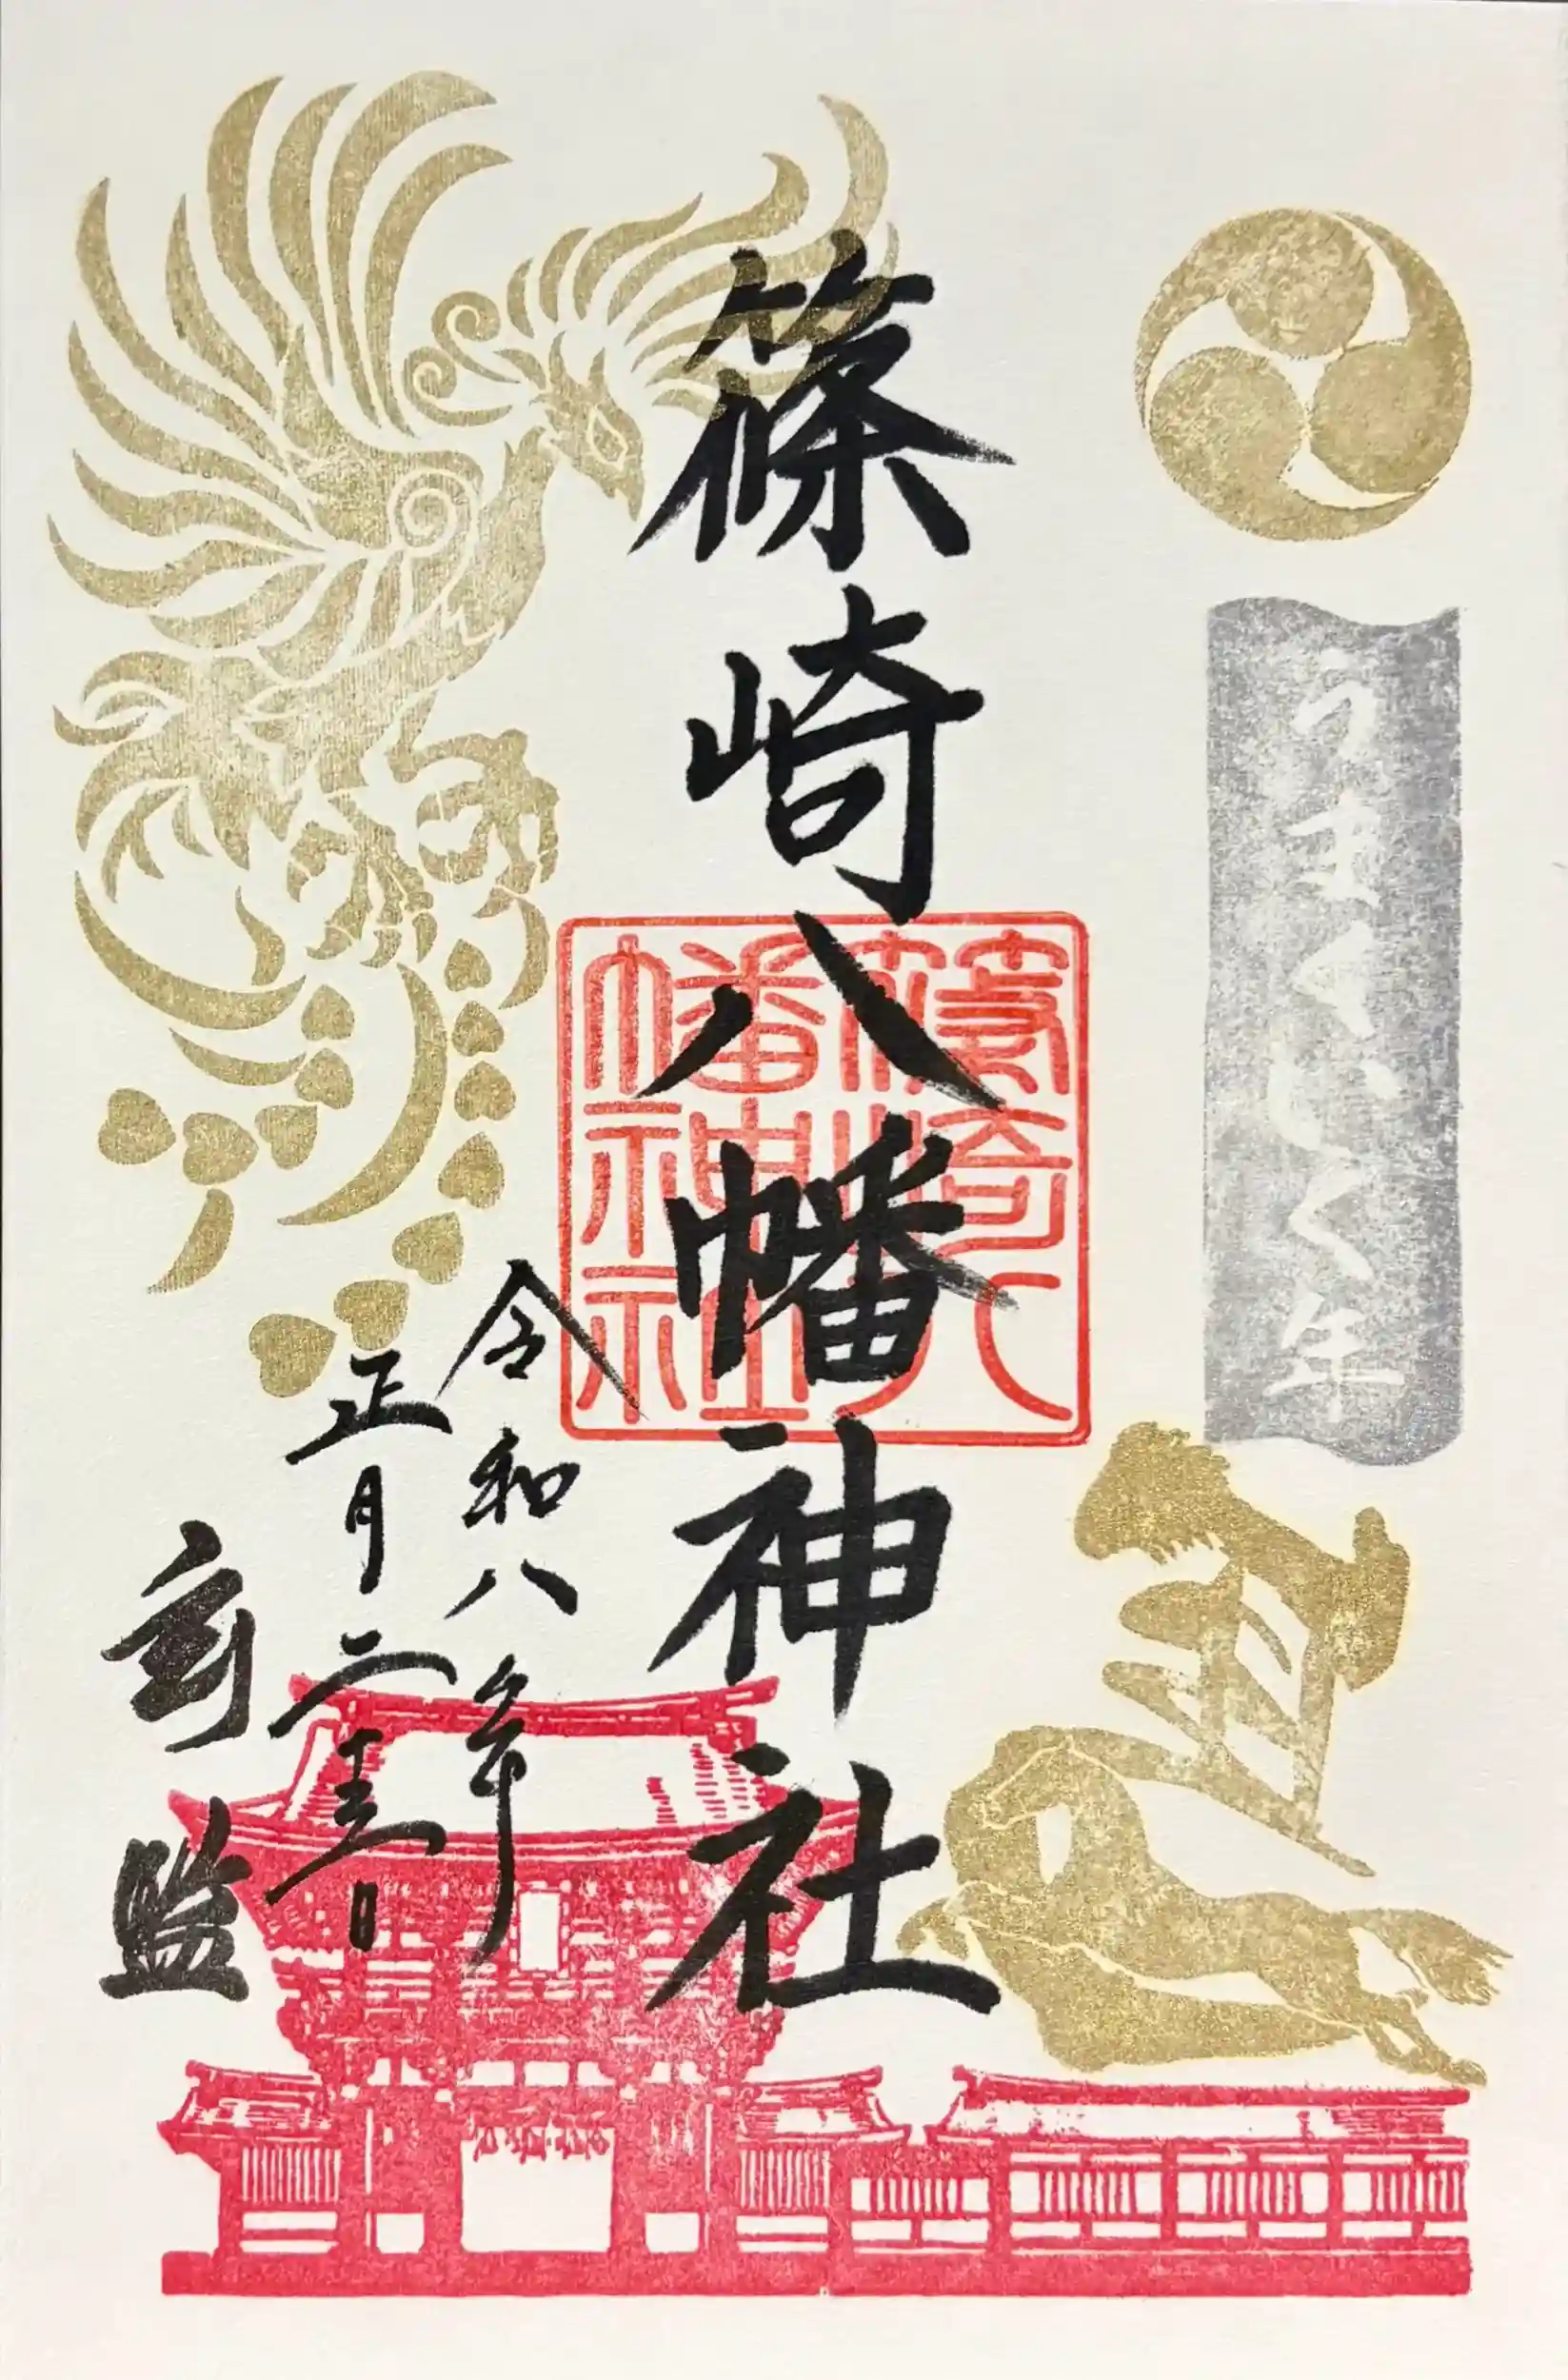 うまくいく年
篠崎八幡神社
篠崎八
幡神社
令和八年
正月二日